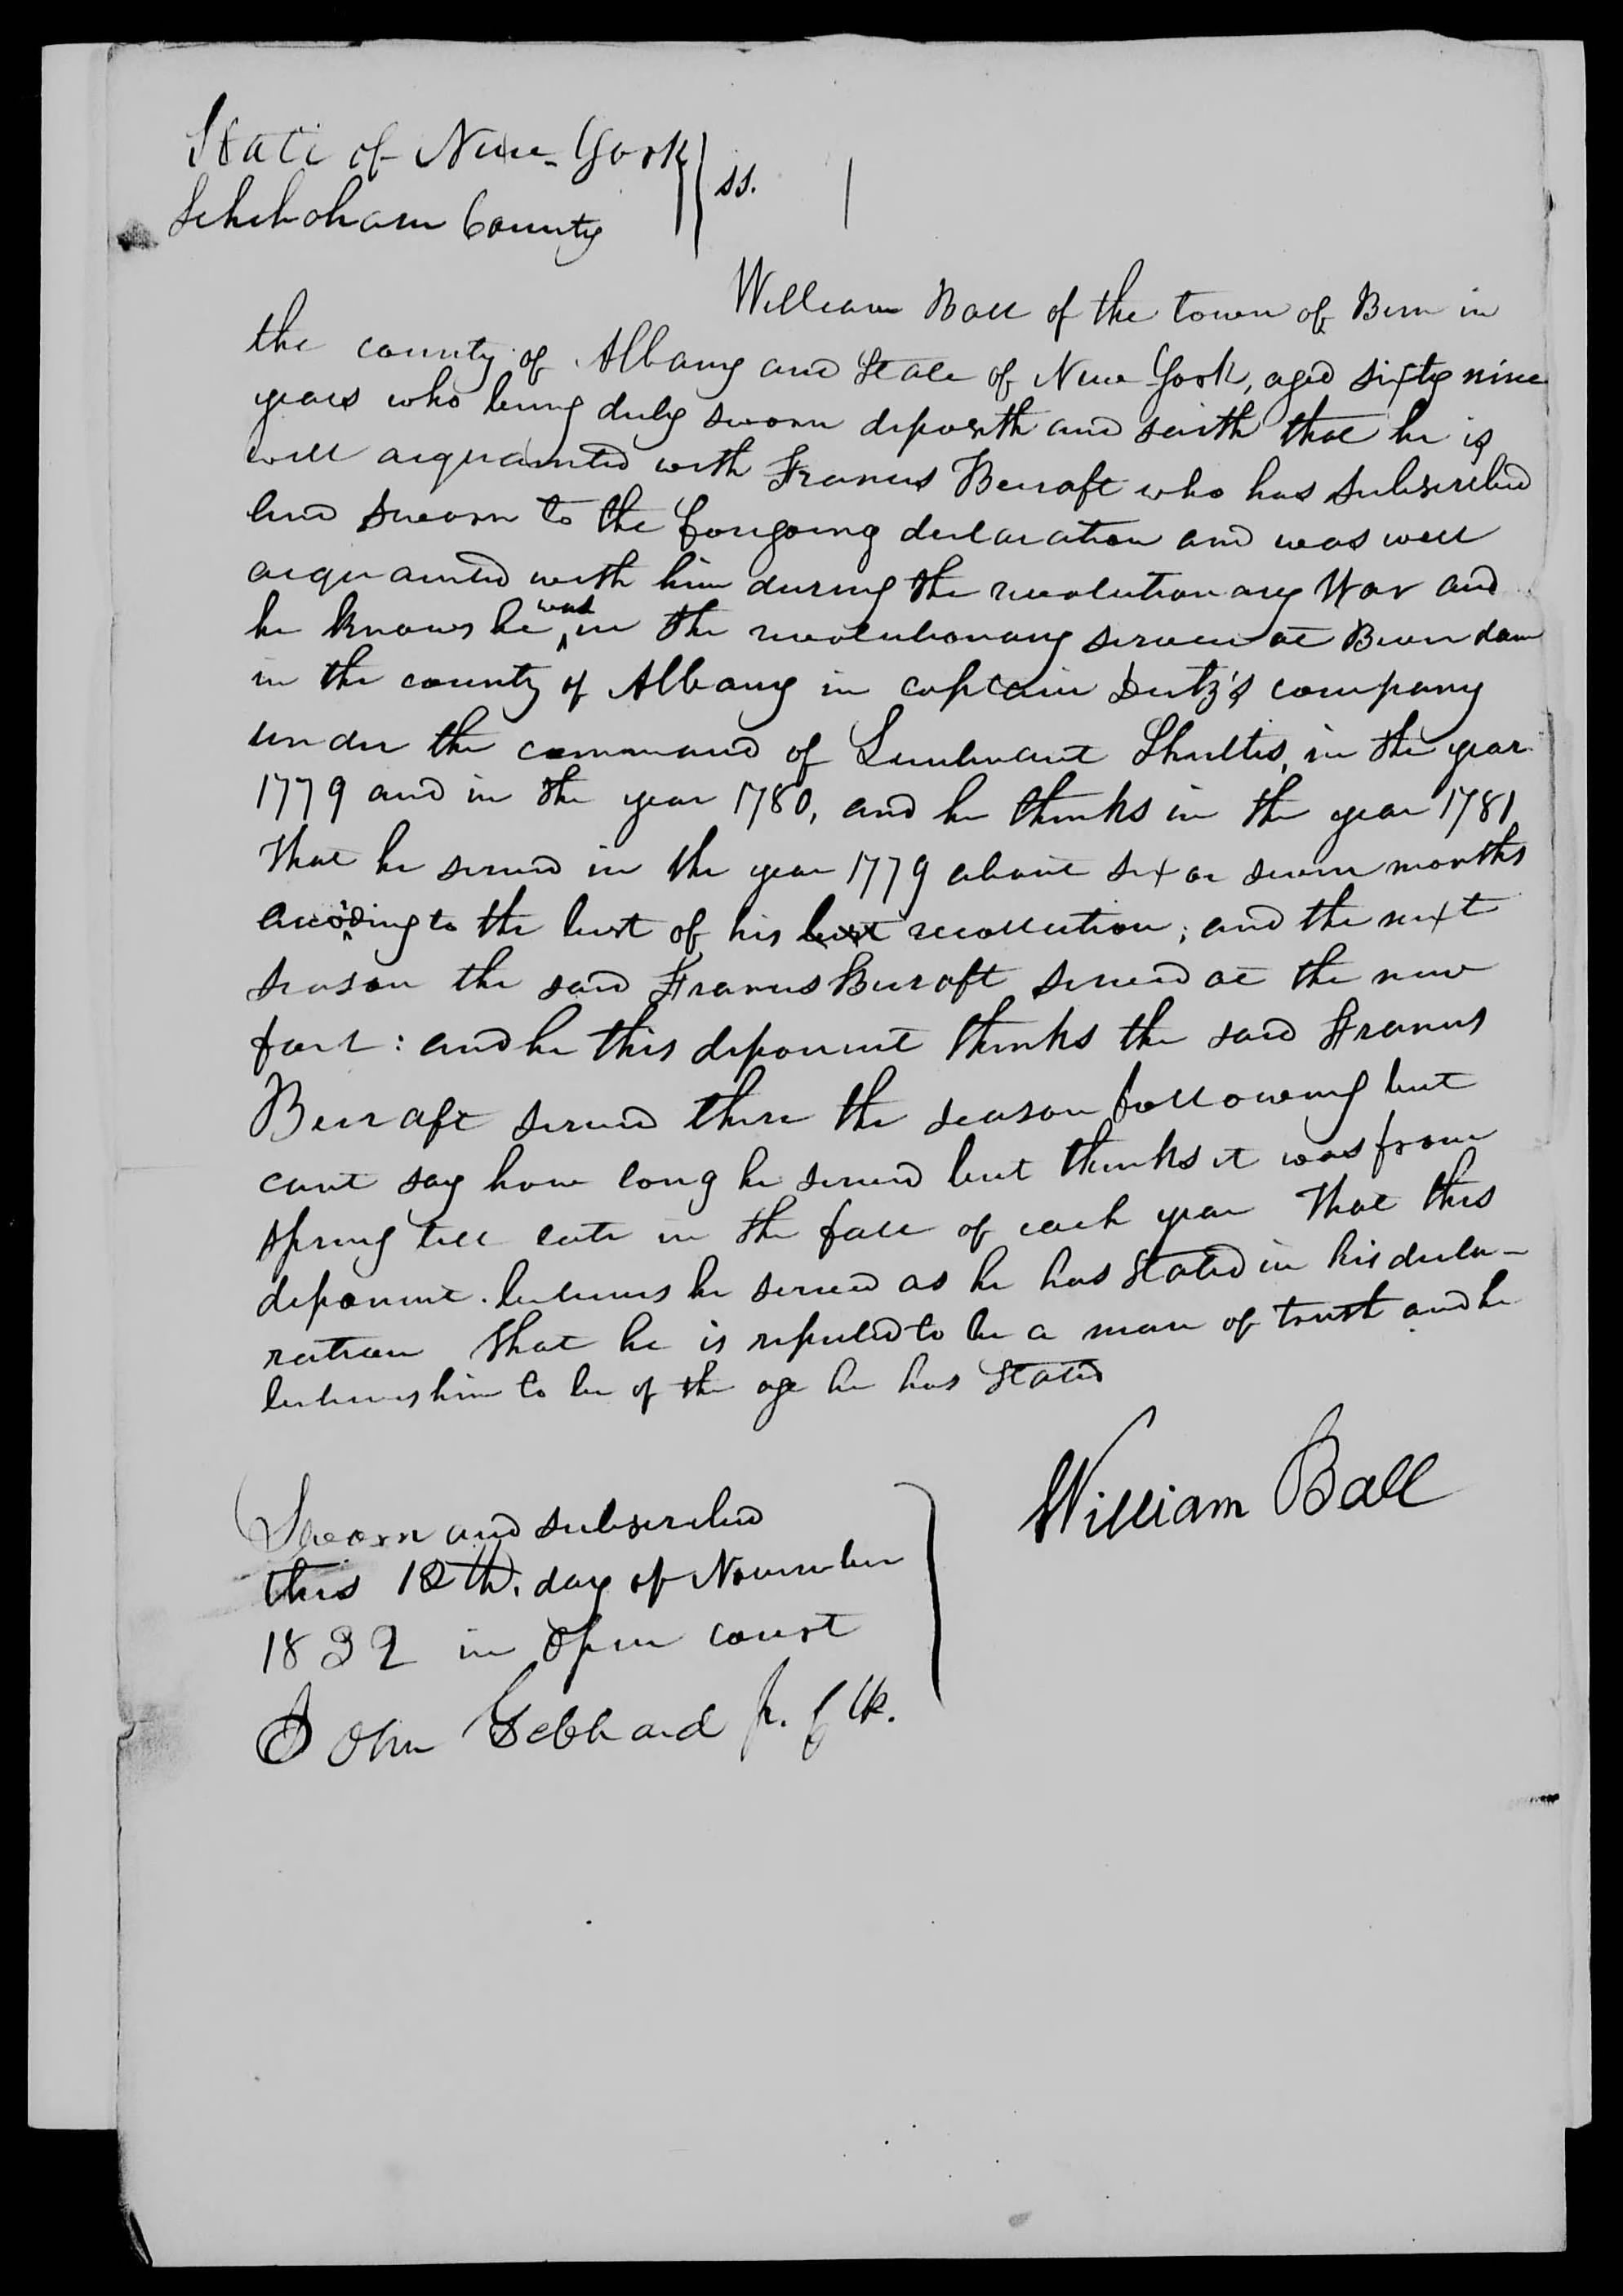 State of New-York } ss.
Schoharie County
William Ball of the town of Bern in
the county of Albany and State of New York, aged sixty nine
years who being duly sworn deposeth and saith that he is
well acquainted with Francis Becraft who has subscribed
and sworn to the foregoing declaration and was well
acquainted with him during the revolutionary War and
he knows he was in the revolutionary service at Beaver dam
in the county of Albany in captain Deitz's company
under the command of Lieutenant Shultes, in the year
1779 and in the year 1780, and he thinks in the year 1781
That he served in the year 1779 about six or seven months
according to the best of his best recollection; and the next
season the said Francis Becraft served at the new
fort: and he this deponent thinks the said Francis
Becraft served there the season following but
cant say how long he served but thinks it was from
spring till late in the fall of each year That this
deponent believes he served as he has stated in his decla-
ration That he is reputed to be a man of truth and he
believes him to be of the age he has stated
William Ball
Sworn and subscribed
this 12th. day of November
1832 in open court
John Gebhard Jr. Clk.